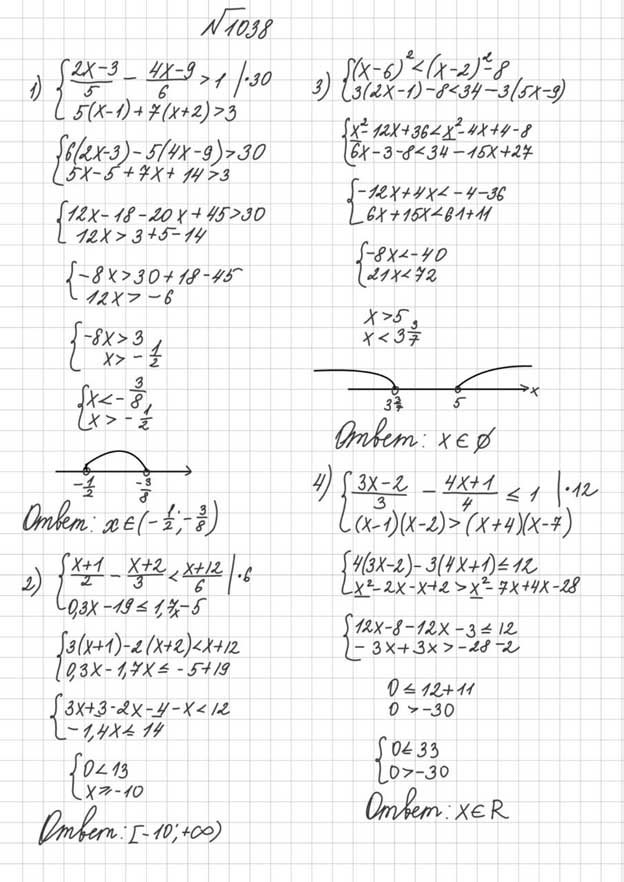 №1038
1) {(2x-3)/5 - (4x-9)/6 > 1 |·30
5(x-1)+7(x+2)>3
{6(2x-3)-5(4x-9)>30
5x-5+7x+14>3
{12x-18-20x+45>30
12x>3+5-14
{-8x>30+18-45
12x>-6
{-8x>3
x>-1/2
{x<-3/8
x>-1/2
-1/2 -3/8
Ответ: x∈(-1/2;-3/8)
2) {(x+1)/2 - (x+2)/3 < (x+12)/6 |·6
0,3x-19≤1,7x-5
{3(x+1)-2(x+2)<x+12
0,3x-1,7x≤-5+19
{3x+3-2x-4-x<12
-1,4x≤14
{0<13
x≥-10
Ответ: [-10;+∞)
3) {(x-6)²<(x-2)²-8
3(2x-1)-8<34-3(5x-9)
{x²-12x+36<x²-4x+4-8
6x-3-8<34-15x+27
{-12x+4x<-4-36
6x+15x<61+11
{-8x<-40
21x<72
x>5
x<3 3/7
3 3/7 5 x
Ответ: x∈∅
4) {(3x-2)/3 - (4x+1)/4 ≤ 1 |·12
(x-1)(x-2)>(x+4)(x-7)
{4(3x-2)-3(4x+1)≤12
x²-2x-x+2>x²-7x+4x-28
{12x-8-12x-3≤12
-3x+3x>-28-2
0≤12+11
0>-30
{0≤33
0>-30
Ответ: x∈R